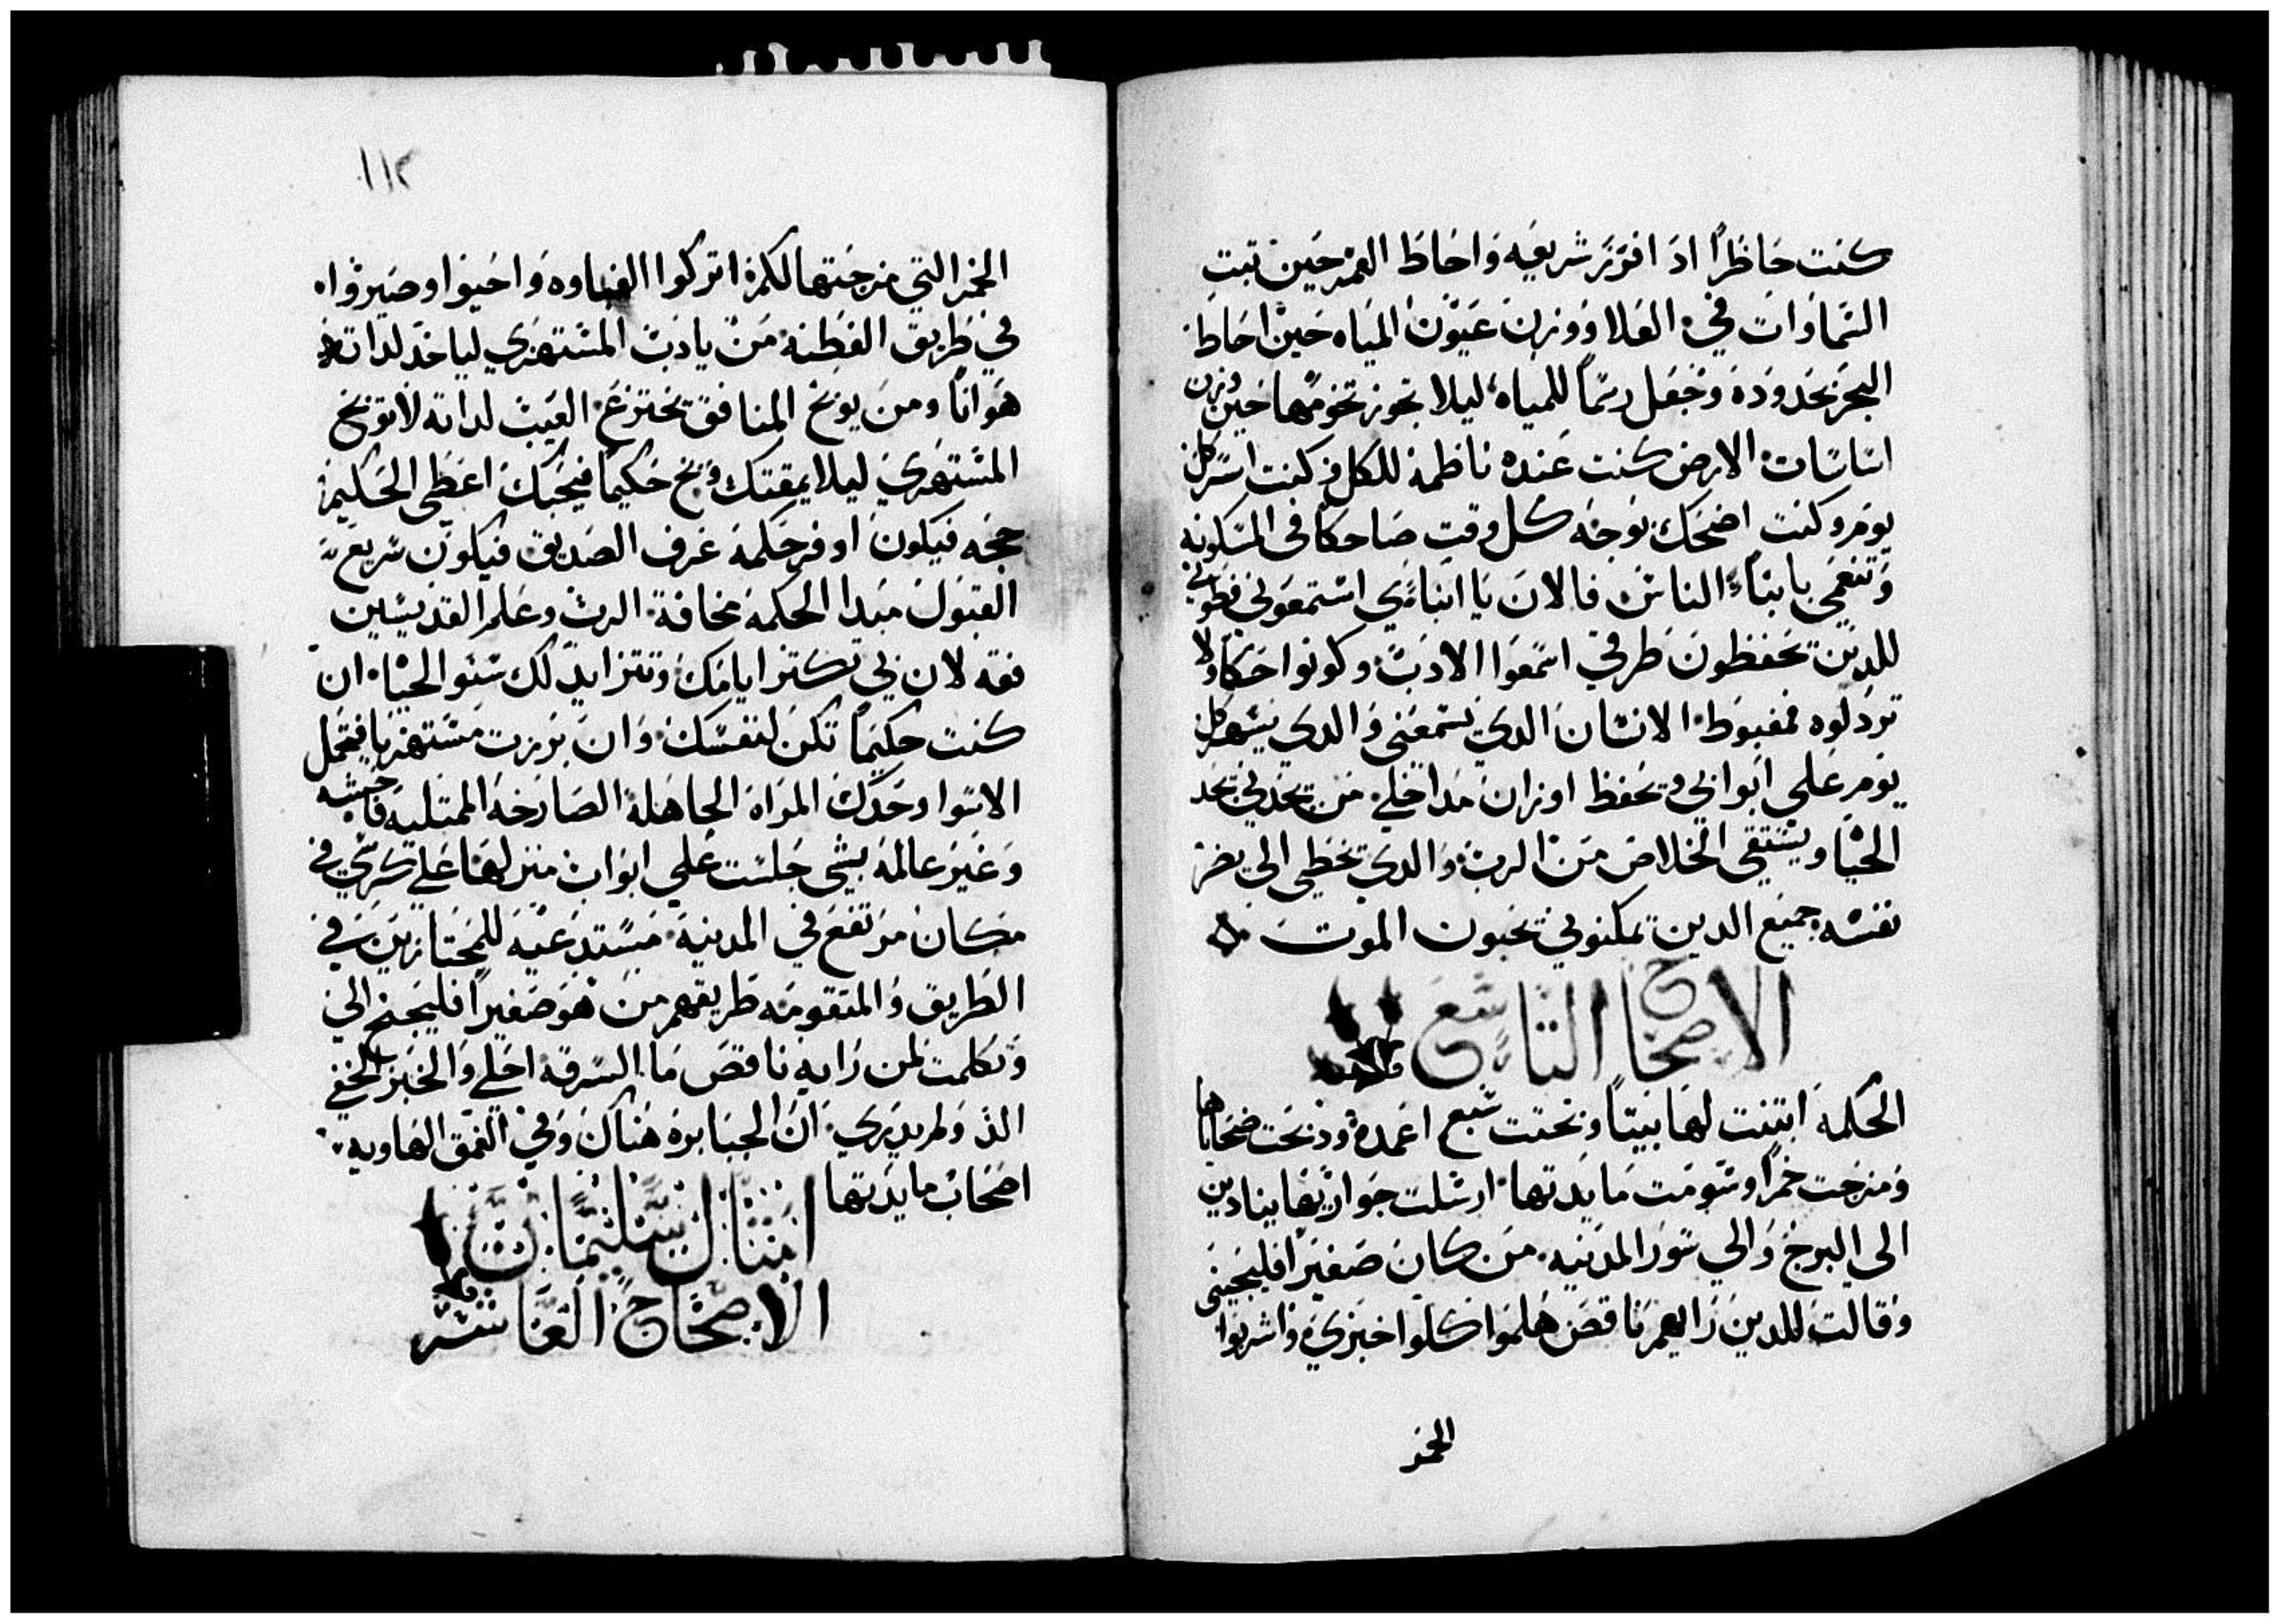 كنت حاظرًا اد افرز شريعه واحاط الغمر حين تبت
السماوات في العلا ووزن عيون المياه حين احاط
البحر بحدوده وجعل رسمًا للمياه ليلا تجوز تخومها حين وزن
اساسات الارض كنت عنده ناظمة للكل وكنت اسر كل
يوم وكنت اضحك بوجه كل وقت ضاحكا في المسكونه
وتنعمي بابناء الناس فالان يا ابناءي استمعوني فطوبي
للدين يحفظون طرقي اسمعوا الادب وكونوا حكما ولا
تردلوه فمغبوط الانسان الدي يسمعني والدي يسهر كل
يوم علي ابوابي ويحفظ اوزان مداخلي من يجدني يجد
الحيا ويستقي الخلاص من الرب والدي يخطي الي يضر
نفسه جميع الدين يمكنوني يحبون الموت
الاصحاح التاسع
الحكمه ابتنت لها بيتًا ونحتت سبع اعمدة ودبحت ضحاياها
ومزجت خمرًا وسومت مايدتها ارسلت جوارها ينادين
الي البرج والي سور المدينه من كان صغيرًا فليجيني
وقالت للدين رايهم ناقص هلموا كلوا خبزي واشربوا
الخمر
١١٢
الخمر التي مزجتها لكم اتركوا الغباوه واحيوا وصيروا
في طريق الفطنه من يادب المستهزي لياخد لداته
هوانًا ومن يوبخ المنافق يخترع العيب لداته لا توبخ
المستهزي ليلا يمقتك وبخ حكيمًا فيحبك اعطي الحكيم
حجه فيكون اوفر حكمه عرف الصديق فيكون سريع
القبول مبدا الحكمه مخافة الرب وعلم القديسين
فقه لان بي تكتر ايامك وتتزايد لك سنو الحيا ان
كنت حكيمًا تكن لنفسك وان برزت مستهزيا فتحمل
الاسوا وحدك المراة الجاهلة الصارخه الممتليه فاحشه
وغير عالمه بشي جلست علي ابواب منزلها علي كرسي في
مكان مرتفع في المدينه مستدعيه للمجتازين في
الطريق والمتقومه طريقهم من هو صغيرًا فليجنح الي
وتكلمت لمن رايه ناقص ما السرقه احلي والخبز الخفي
الد ولم يدري ان الجبابره هناك وفي العمق الهاويه
اصحاب مايدتها
امتال سليمان
الاصحاح العاشر